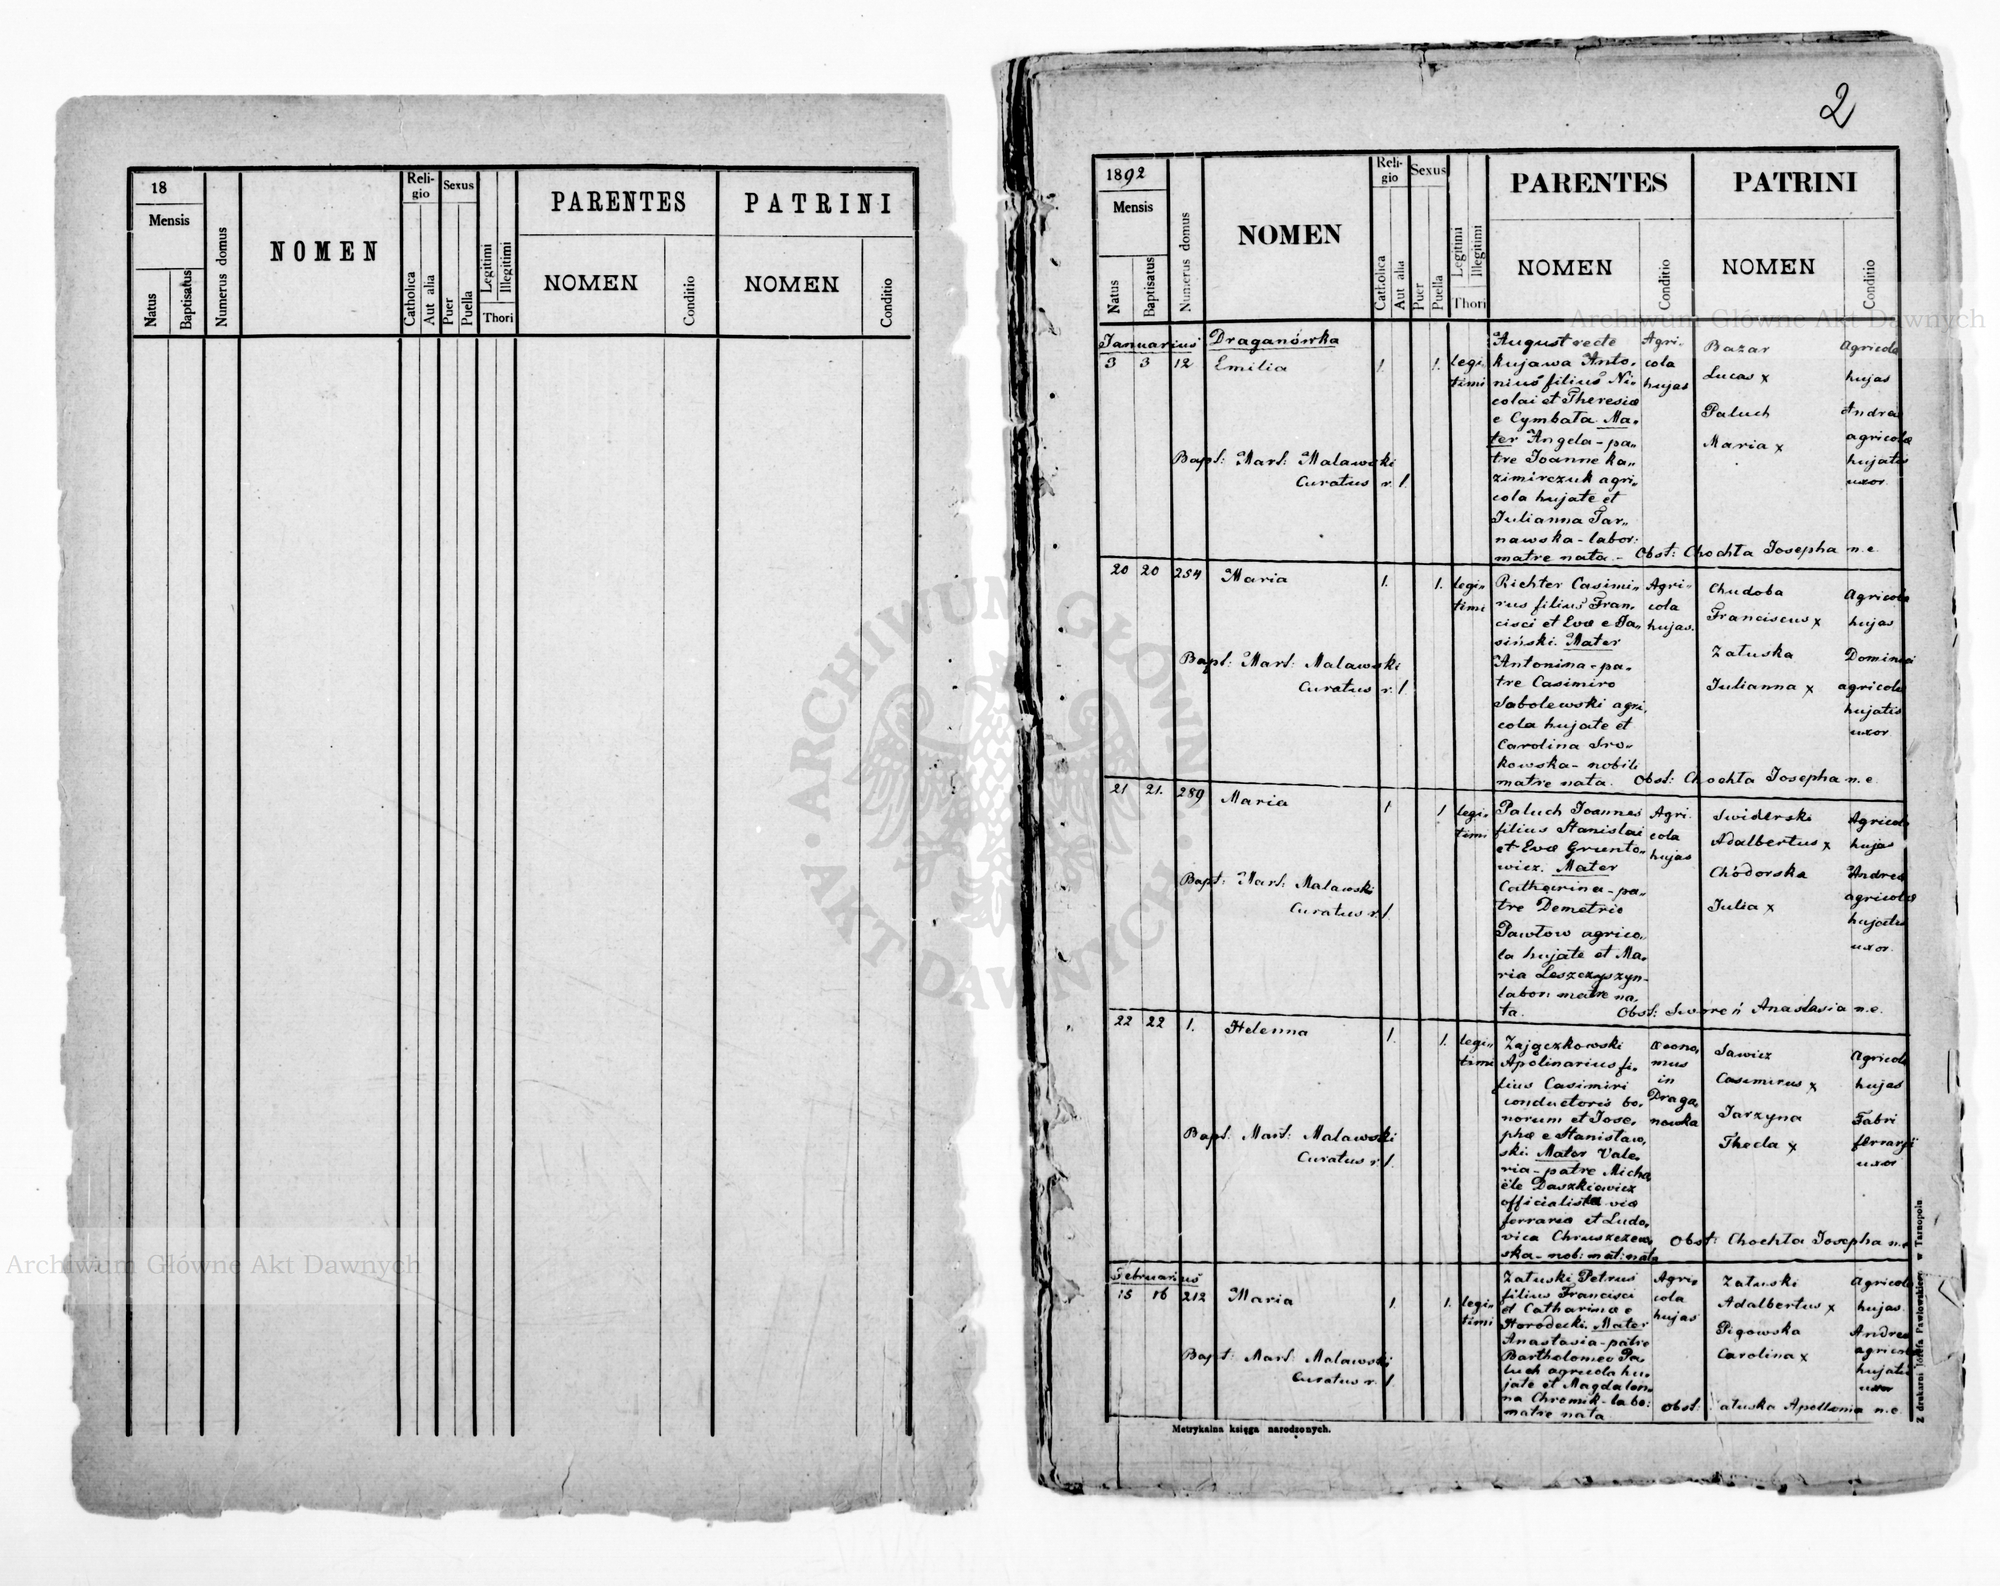 18
Mensis
Natus
Baptisatus
Numerus domus
NOMEN
Religio
Catholica
Aut alia
Sexus
Puer
Puella
Legitimi
Illegitimi
Thori
PARENTES
NOMEN
Conditio
PATRINI
NOMEN
Conditio
2
1892
Mensis
Natus
Baptisatus
Numerus domus
NOMEN
Reli-
gio
Catholica
Aut alia
Sexus
Puer
Puella
Legitimi
Illegitimi
Thori
PARENTES
NOMEN
Conditio
PATRINI
NOMEN
Conditio
Januarius
Draganówka
3 3 12 Emilia 1. 1. legi-
timi
August recte
Kujawa Anto-
nius filius Ni-
colai et Theresiæ
e Cymbała. Ma-
ter Angela - pa-
tre Joanne Ka-
zimirczuk agri-
cola hujate et
Julianna Tar-
nawska - labor:
matre nata. -
Agri-
cola
hujas
Bazar
Lucas x
Paluch
Maria x
Agricola
hujas
Andreæ
agricolæ
hujatis
uxor.
Bapt: Mart: Malawski
Curatus r. l.
Obst: Chochła Josepha n. e.
20 20 254 Maria 1. 1. legi-
timi
Richter Casimi-
rus filius Fran-
cisci et Evæ e Ja-
siński. Mater
Antonina - pa-
tre Casimiro
Sobolewski agri-
cola hujate et
Carolina Sro-
kowska - nobili
matre nata.
Agri-
cola
hujas.
Chudoba
Franciscus x
Załuska
Julianna x
Agricola
hujas
Dominici
agricolæ
hujatis
uxor
Bapt: Mart: Malawski
Curatus r. l.
Obst: Chochła Josepha n. e.
21 21. 289 Maria 1 1 legi-
timi
Paluch Joannes
filius Stanislai
et Evæ Grunto-
wicz. Mater
Catharina - pa-
tre Demetrio
Pawłow agrico-
la hujate et Ma-
ria Leszczyszyn -
labor: matre na-
ta.
Agri-
cola
hujas
Swiderski
Adalbertus x
Chodorska
Julia x
Agricola
hujas
Andreæ
agricolæ
hujatis
uxor.
Bapt: Mart: Malawski
Curatus r. l.
Obst: Sworeń Anastasia n. e.
22 22 1. Helenna 1. 1. legi-
timi
Zajączkowski
Apolinarius fi-
lius Casimiri
conductoris bo-
norum et Jose-
phæ e Stanisław-
ski. Mater Vale-
ria - patre Micha-
ële Daszkiewicz
officialista viæ
ferrariæ et Ludo-
vica Chruszczew-
ska - nob: mat: nata
Œcono-
mus
in
Draga-
nowka
Sawicz
Casimirus x
Jarzyna
Thecla x
Agricola
hujas
Fabri
ferrarii
uxor
Bapt. Mart: Malawski
Curatus r. l.
Obst: Chochła Josepha n. e.
Februarius
15 16 212 Maria 1. 1. legi-
timi
Załuski Petrus
filius Francisci
et Catharinæ e
Horodecki. Mater
Anastasia - patre
Bartholomeo Pa-
luch agricola hu-
jate et Magdalen-
na Chromik - labo:
matre nata
Agri-
cola
hujas
Załuski
Adalbertus x
Pigowska
Carolina x
Agricola
hujas.
Andreæ
agricolæ
hujatis
uxor
Bapt: Mart: Malawski
Curatus r. l.
Obst: atuska Apollonia n. e.
Metrykalna księga narodzonych.
Z drukarni Józefa Pawłowskiego w Tarnopolu
Archiwum Główne Akt Dawnych
Archiwum Główne Akt Dawnych
ARCHIWUM GŁÓWNE AKT DAWNYCH